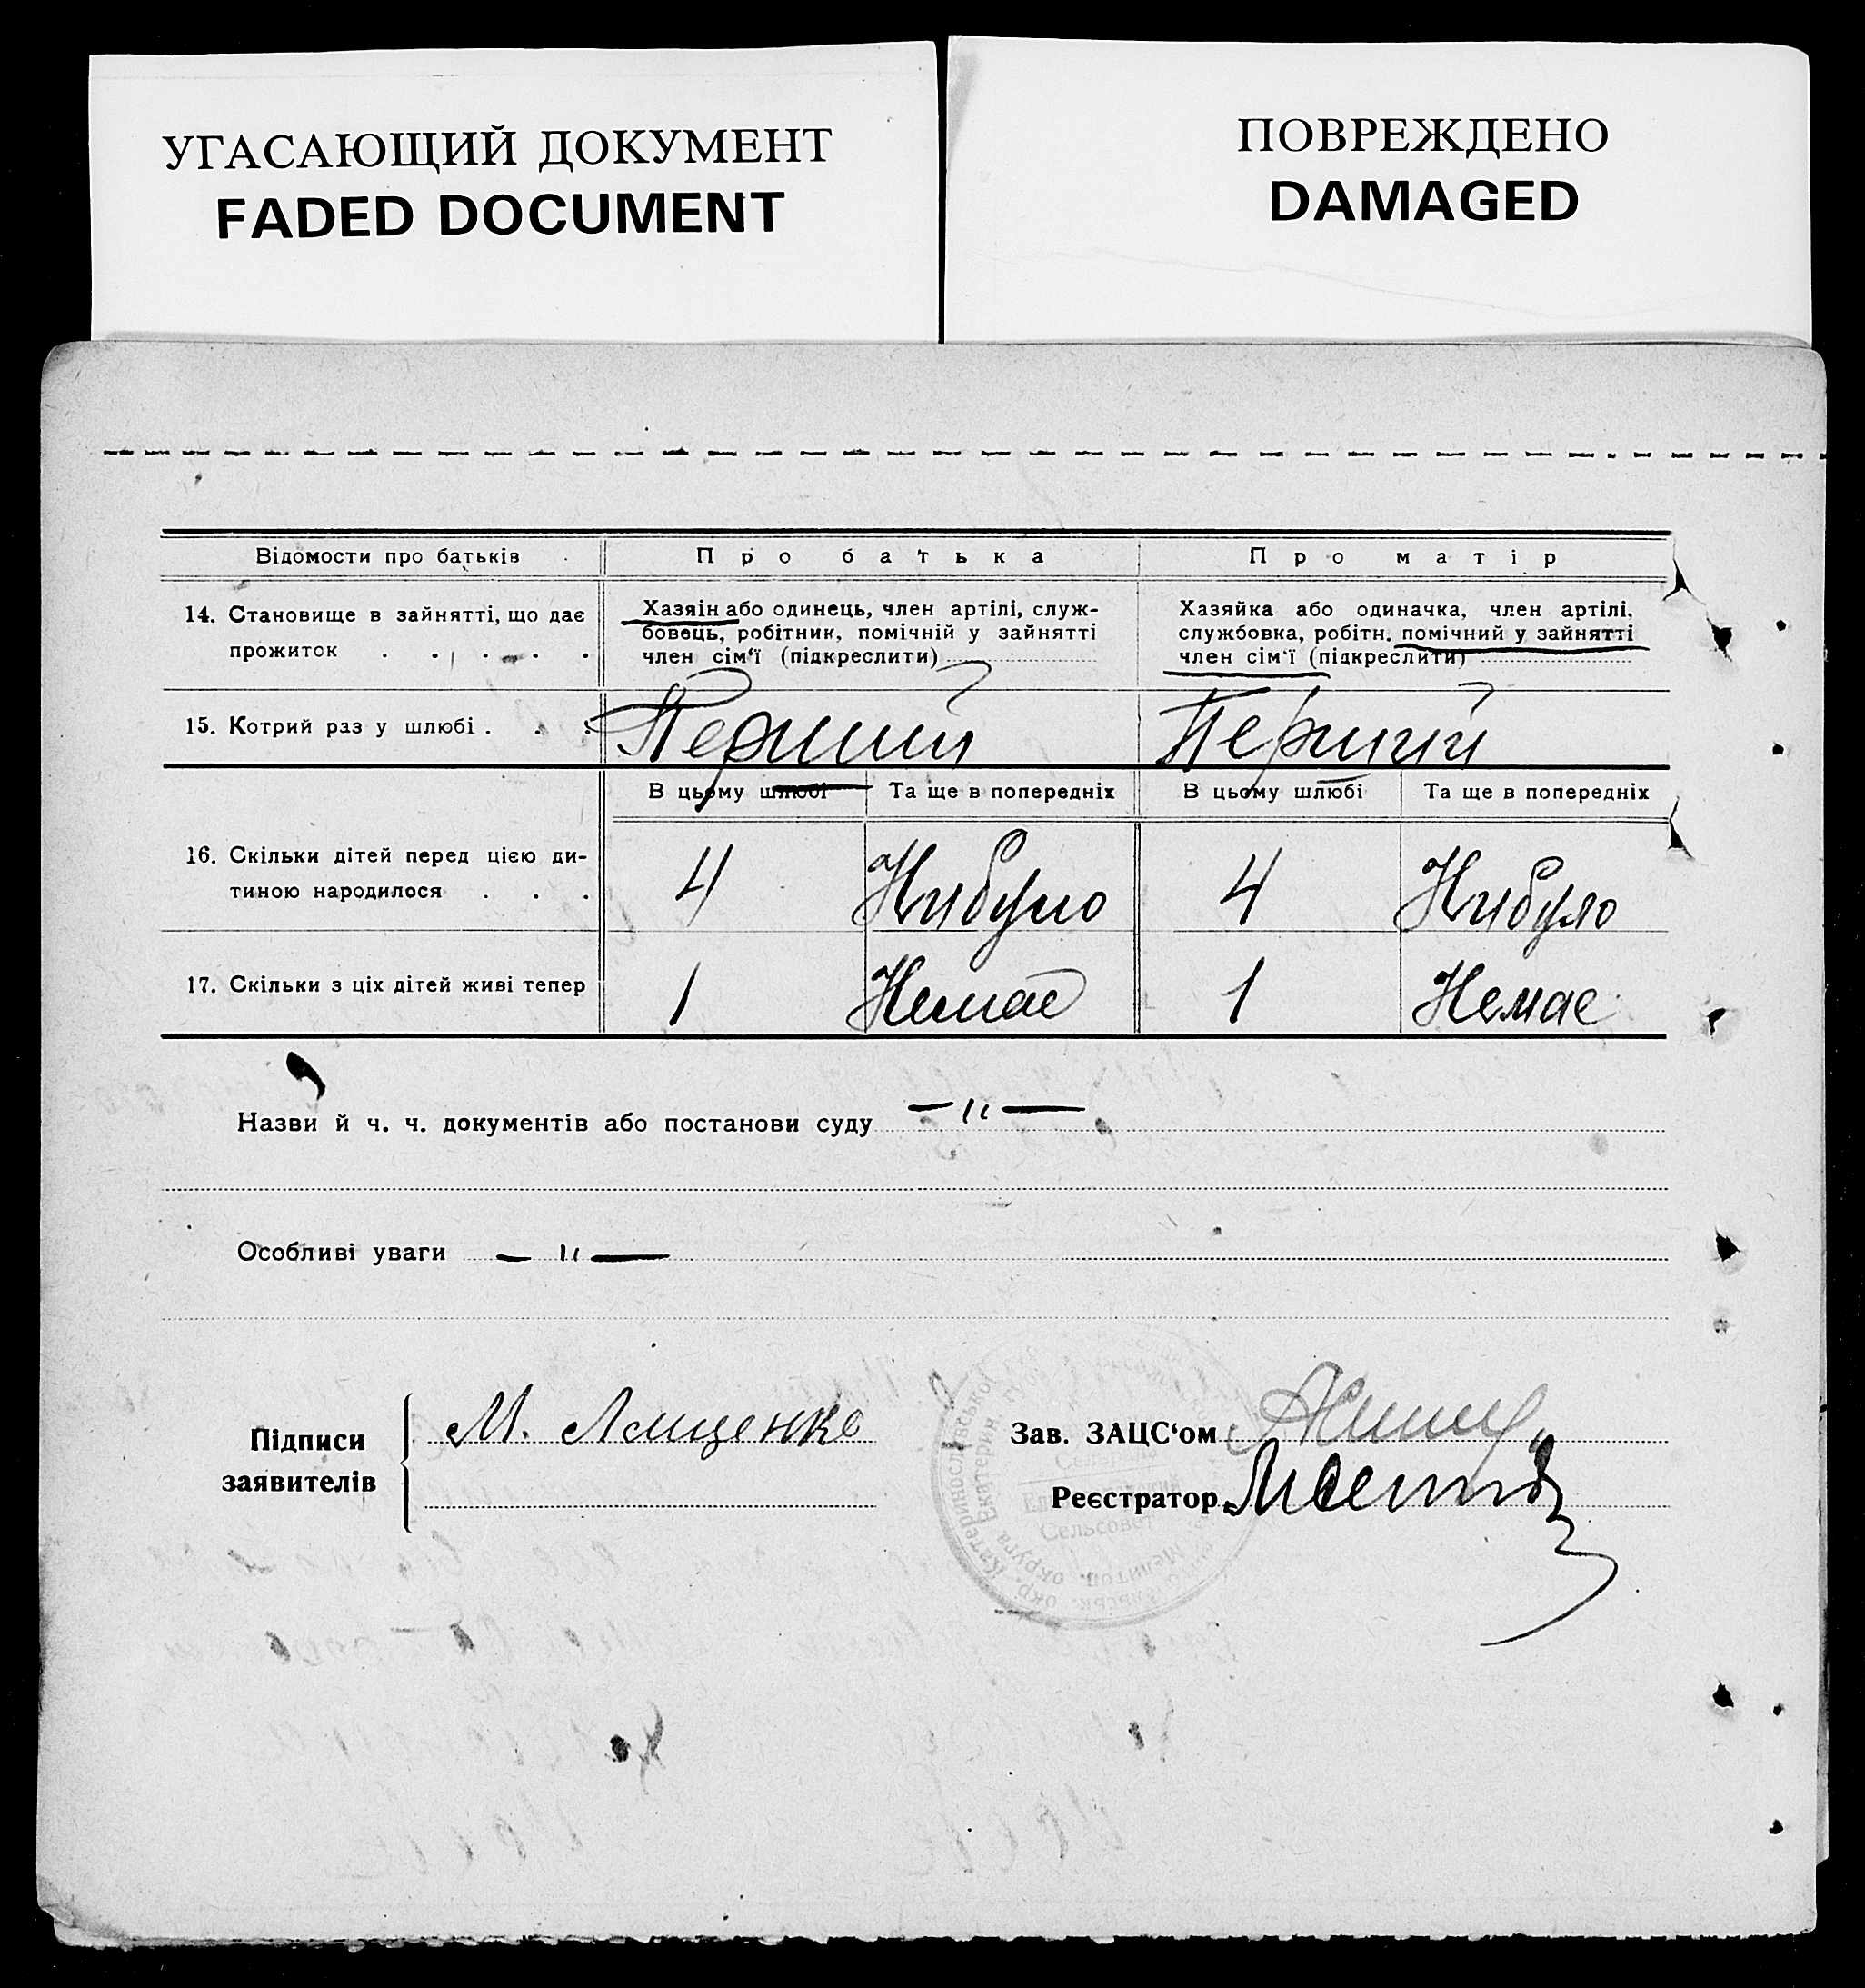 УГАСАЮЩИЙ ДОКУМЕНТ
FADED DOCUMENT
ПОВРЕЖДЕНО
DAMAGED
Відомости про батьків
Про батька
Про матір
14. Становище в зайнятті, що дає
прожиток . . . . .
Хазяін або одинець, член артілі, служ-
бовець, робітник, помічній у зайнятті
член сім'ї (підкреслити)
Хазяйка або одиначка, член артілі,
службовка, робітн. помічний у зайнятті
член сім'ї (підкреслити)
15. Котрий раз у шлюбі . . .
Перший
Перший
В цьому шлюбі
Та ще в попередніх
В цьому шлюбі
Та ще в попередніх
16. Скільки дітей перед цією ди-
тиною народилося . . .
4
Нибуло
4
Нибуло
17. Скільки з ціх дітей живі тепер
1
Немає
1
Немає
Назви й ч. ч. документів або постанови суду — " —
Особливі уваги — " —
Підписи
заявителів
М. Лященко
Зав. ЗАЦС'ом
Реєстратор
Сельсовет